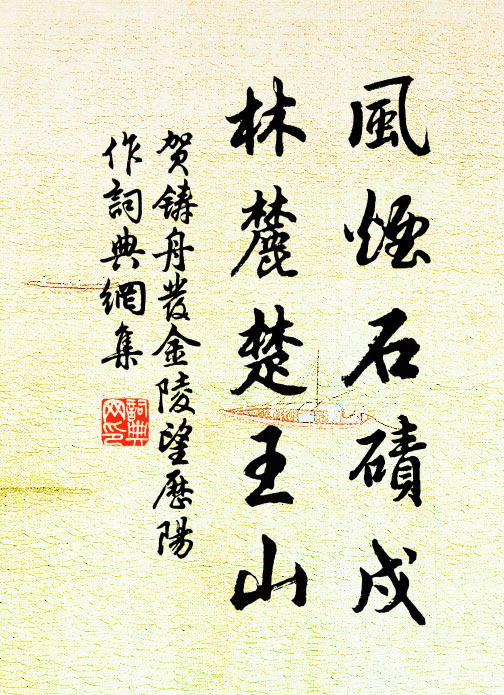 風煙石磧戍
林麓楚王山
賀鑄舟發金陵望歷陽
作詞典網集
詞典网印